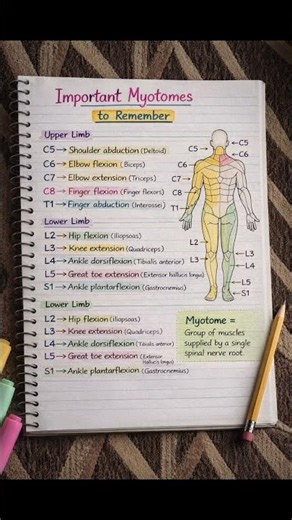 Important Myotomes
to Remember
Upper Limb
C5 → Shoulder abduction (Deltoid)
C6 → Elbow flexion (Biceps)
C7 → Elbow extension (Triceps)
C8 → Finger flexion (Finger flexors)
T1 → Finger abduction (Interossei)
C5
C5
C6
C6
C7
C8
T1
Lower Limb
L2 → Hip flexion (iliopsoas)
L3 → Knee extension (Quadriceps)
L4 → Ankle dorsiflexion (Tibialis anterior)
L5 → Great toe extension (Extensor hallucis longus)
S1 → Ankle plantarflexion (Gastrocnemius)
L2
L3
L3
L4
L4
L5
S1
Lower Limb
L2 → Hip flexion (iliopsoas)
L3 → Knee extension (Quadriceps)
L4 → Ankle dorsiflexion (Tibialis anterior)
L5 → Great toe extension (Extensor
hallucis longus)
S1 → Ankle plantarflexion (Gastrocnemius)
Myotome =
Group of muscles
supplied by a single
spinal nerve root.